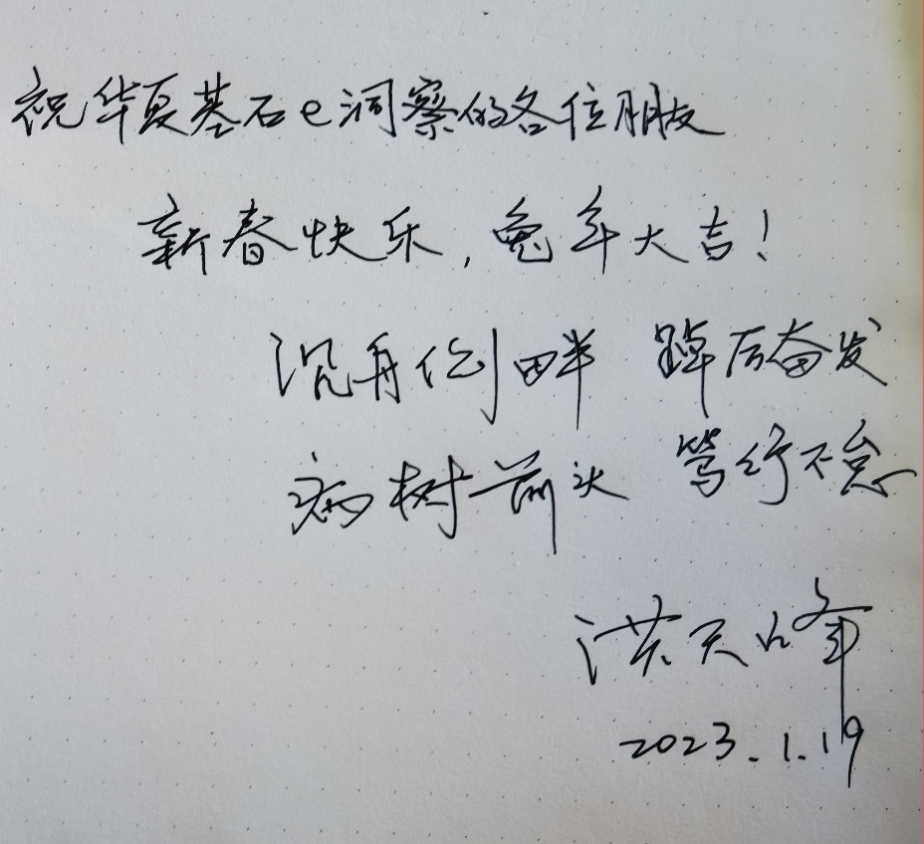 祝华夏基石e洞察的各位朋友
新春快乐，兔年大吉！
沉舟侧畔 踔厉奋发
病树前头 笃行不怠
洪天峰
2023.1.19